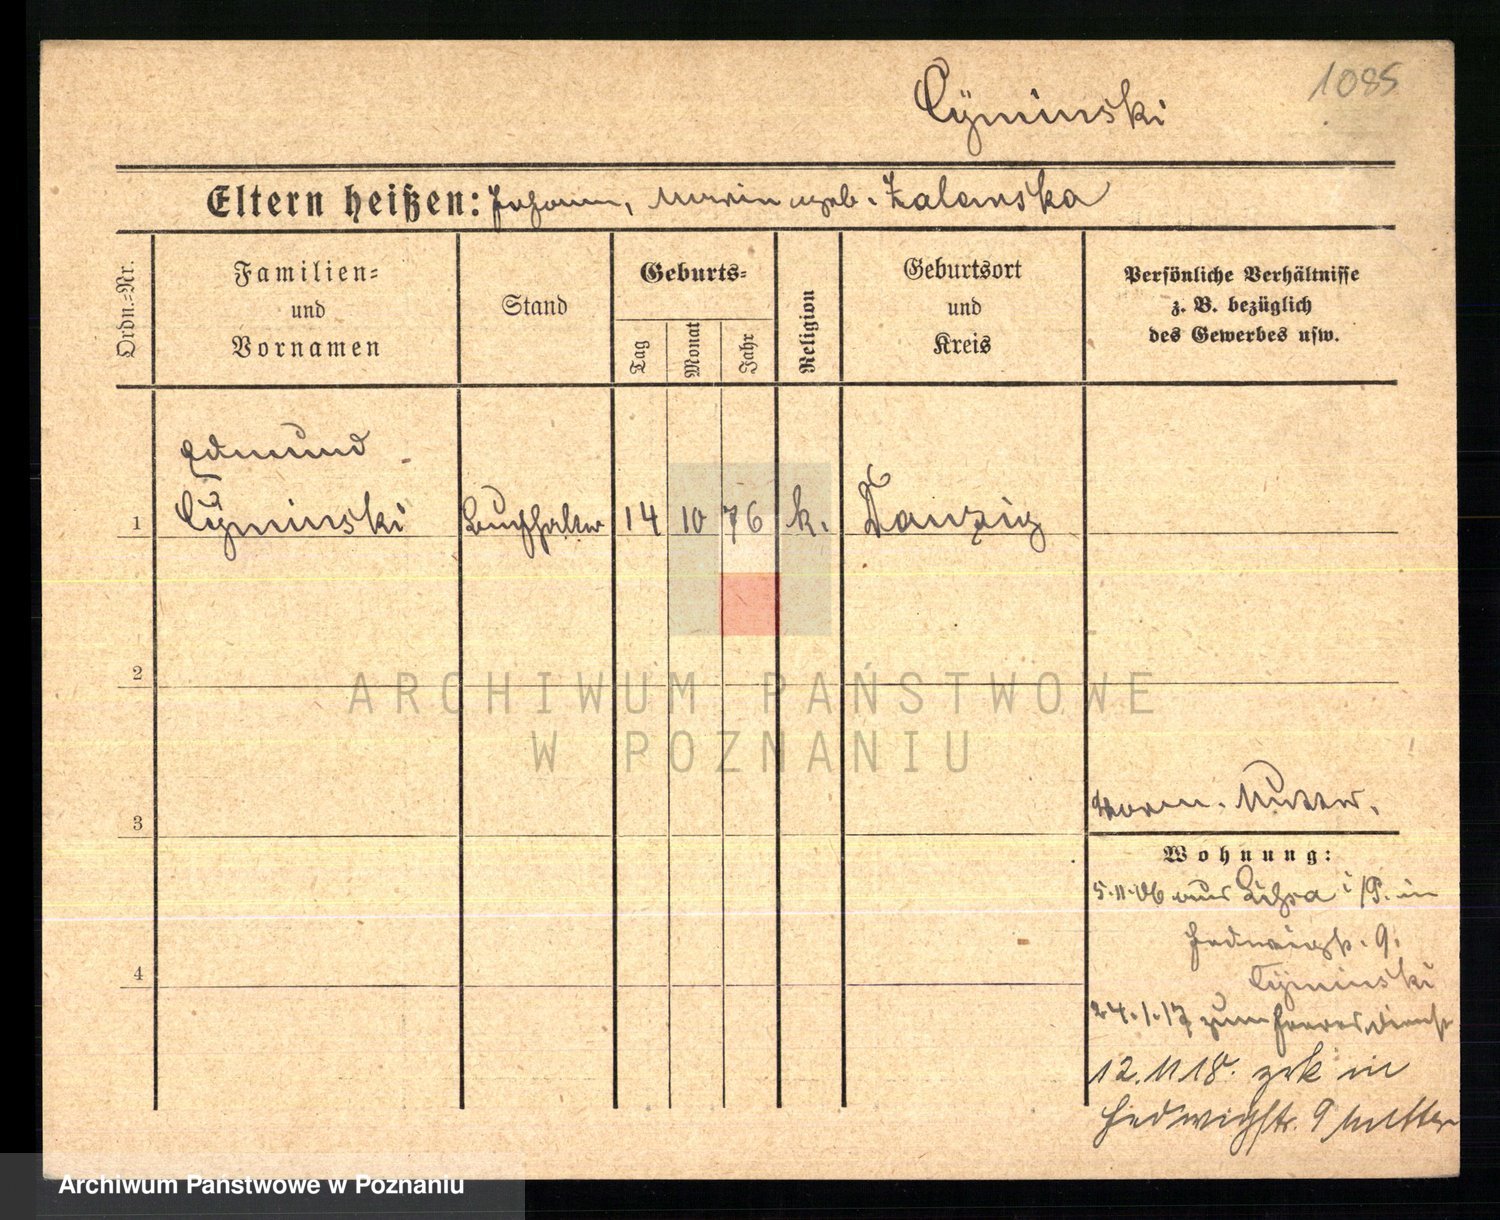 Cyminski
1085
Eltern heißen: Johann, Maria geb. Zalewska
Ordn.=Nr.
Familien=
und
Vornamen
Stand
Geburts=
Tag
Monat
Jahr
Religion
Geburtsort
und
Kreis
Persönliche Verhältnisse
z. B. bezüglich
des Gewerbes usw.
Edmund
1 Cyminski Buchhalter 14 10 76 k. Danzig
2
3
4
Mutter.
Wohnung:
5.11.06 aus i/P. in
Hedwigstr. 9.
Cyminski
24.1.17 zum Heeresdienst
12.11 18. zrk in
Hedwigstr. 9 Mutter
ARCHIWUM PAŃSTWOWE
W POZNANIU
Archiwum Państwowe w Poznaniu